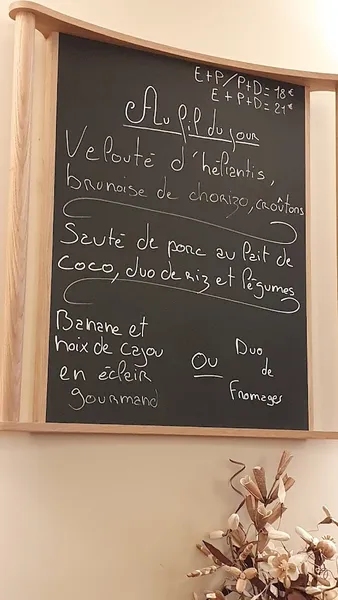 E+P/P+D=18€
E+P+D=21€
Au fil du jour
Velouté d'héliantis,
brunoise de chorizo, croûtons
Sauté de porc au lait de
coco, duo de riz et légumes
Banane et
noix de cajou
en éclair
gourmand
OU
Duo
de
Fromages